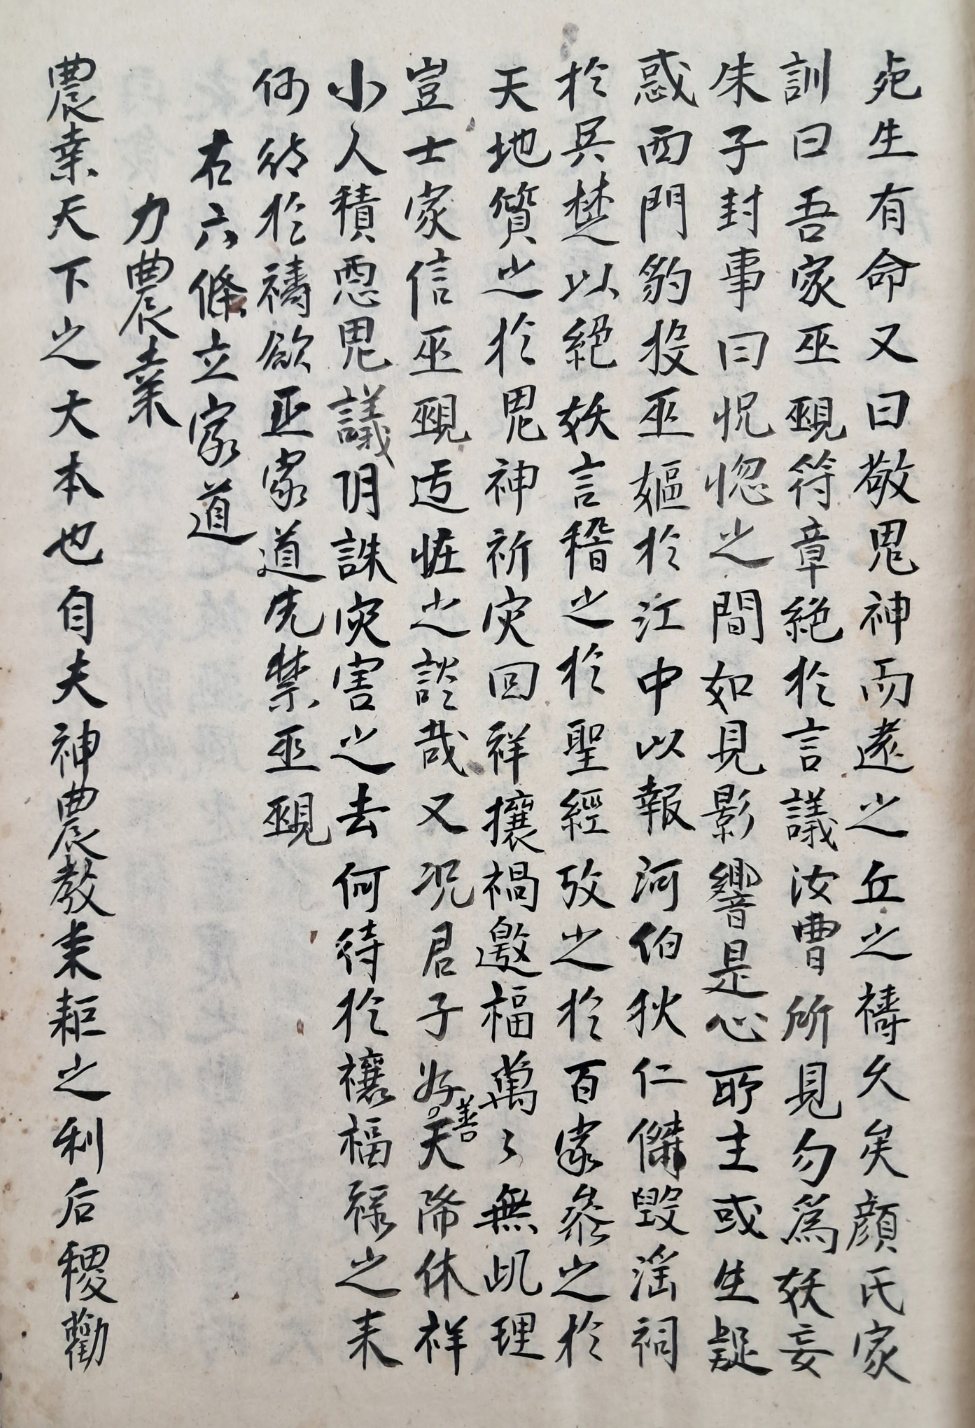 死生有命又曰敬鬼神而遠之丘之禱久矣顔氏家
訓曰吾家巫覡符章絶於言議汝曹所見勿爲妖妄
朱子封事曰怳惚之間如見影響是心所主或生疑
惑西門豹投巫嫗於江中以報河伯狄仁傑毀淫祠
於吳楚以絕妖言稽之於聖經攷之於百家參之於
天地質之於鬼神祈灾回祥攘禍邀福萬〻無此理
豈士家信巫覡迂恠之談哉又况君子好善天降休祥
小人積惡鬼議明誅灾害之去何待於禳福祿之来
何待於禱欲正家道先禁巫覡
右六條立家道
力農業
農業天下之大本也自夫神農教耒耟之利后稷勸